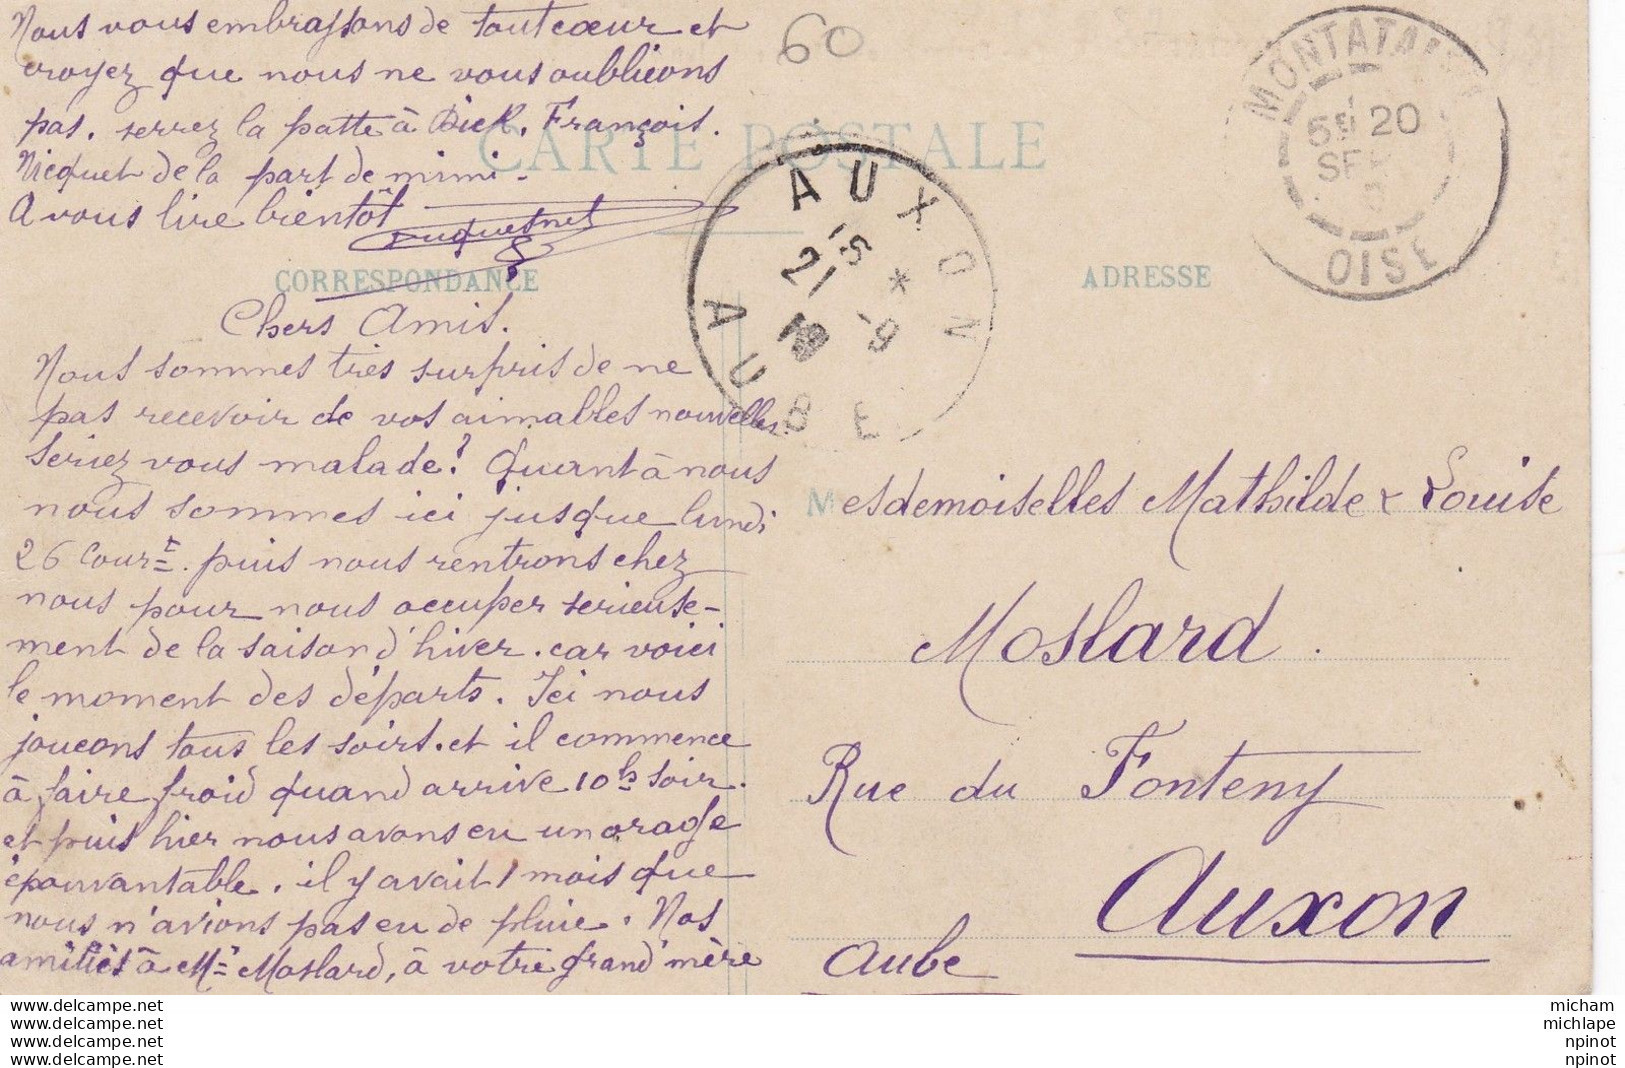 Nous vous embrassons de tout cœur et
croyez que nous ne vous oublions
pas. serrez la patte à Dick, François.
Nicquet de la part de mimi.
A vous lire bientôt
CARTE POSTALE
CORRESPONDANCE
Chers Amis.
Nous sommes très surpris de ne
pas recevoir de vos aimables nouvelles
Seriez vous malade? Quant à nous
nous sommes ici jusque lundi
26 Court. puis nous rentrons chez
nous pour nous occuper serieuse-
ment de la saison d'hiver. car voici
le moment des départs. Ici nous
joueons tous les soirs. et il commence
à faire froid quand arrive 10hs soir.
et puis hier nous avons eu un orage
épouvantable. il y avait 1 mois que
nous n'avions pas eu de pluie. Nos
amitiés à Mr Moslard, à votre grand'mère
60
AUXON
15 *
21 -9
AUBE
MONTATAIRE
5 20
SEPT
OISE
ADRESSE
Mesdemoiselles Mathilde & Louise
Moslard.
Rue du Fonteny
Auxon
Aube
micham
michlape
npinot
npinot
micham
michlape
npinot
npinot